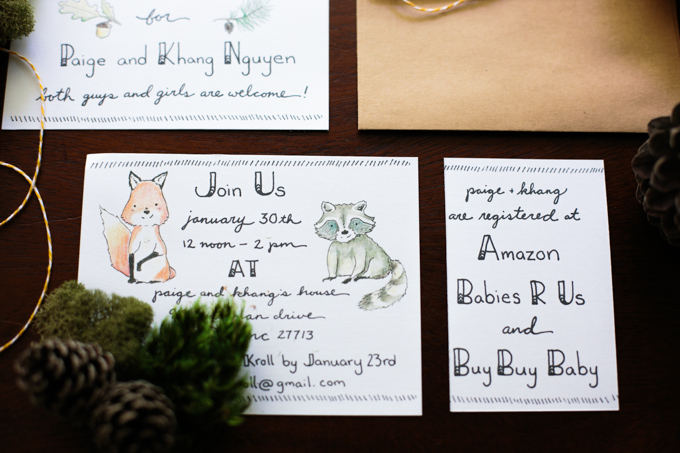 for
Paige and Khang Nguyen
both guys and girls are welcome!
Join Us
january 30th
12 noon - 2 pm
AT
paige and khang's house
drive
nc 27713
Kroll by January 23rd
@gmail.com
paige + khang
are registered at
Amazon
Babies R Us
and
Buy Buy Baby